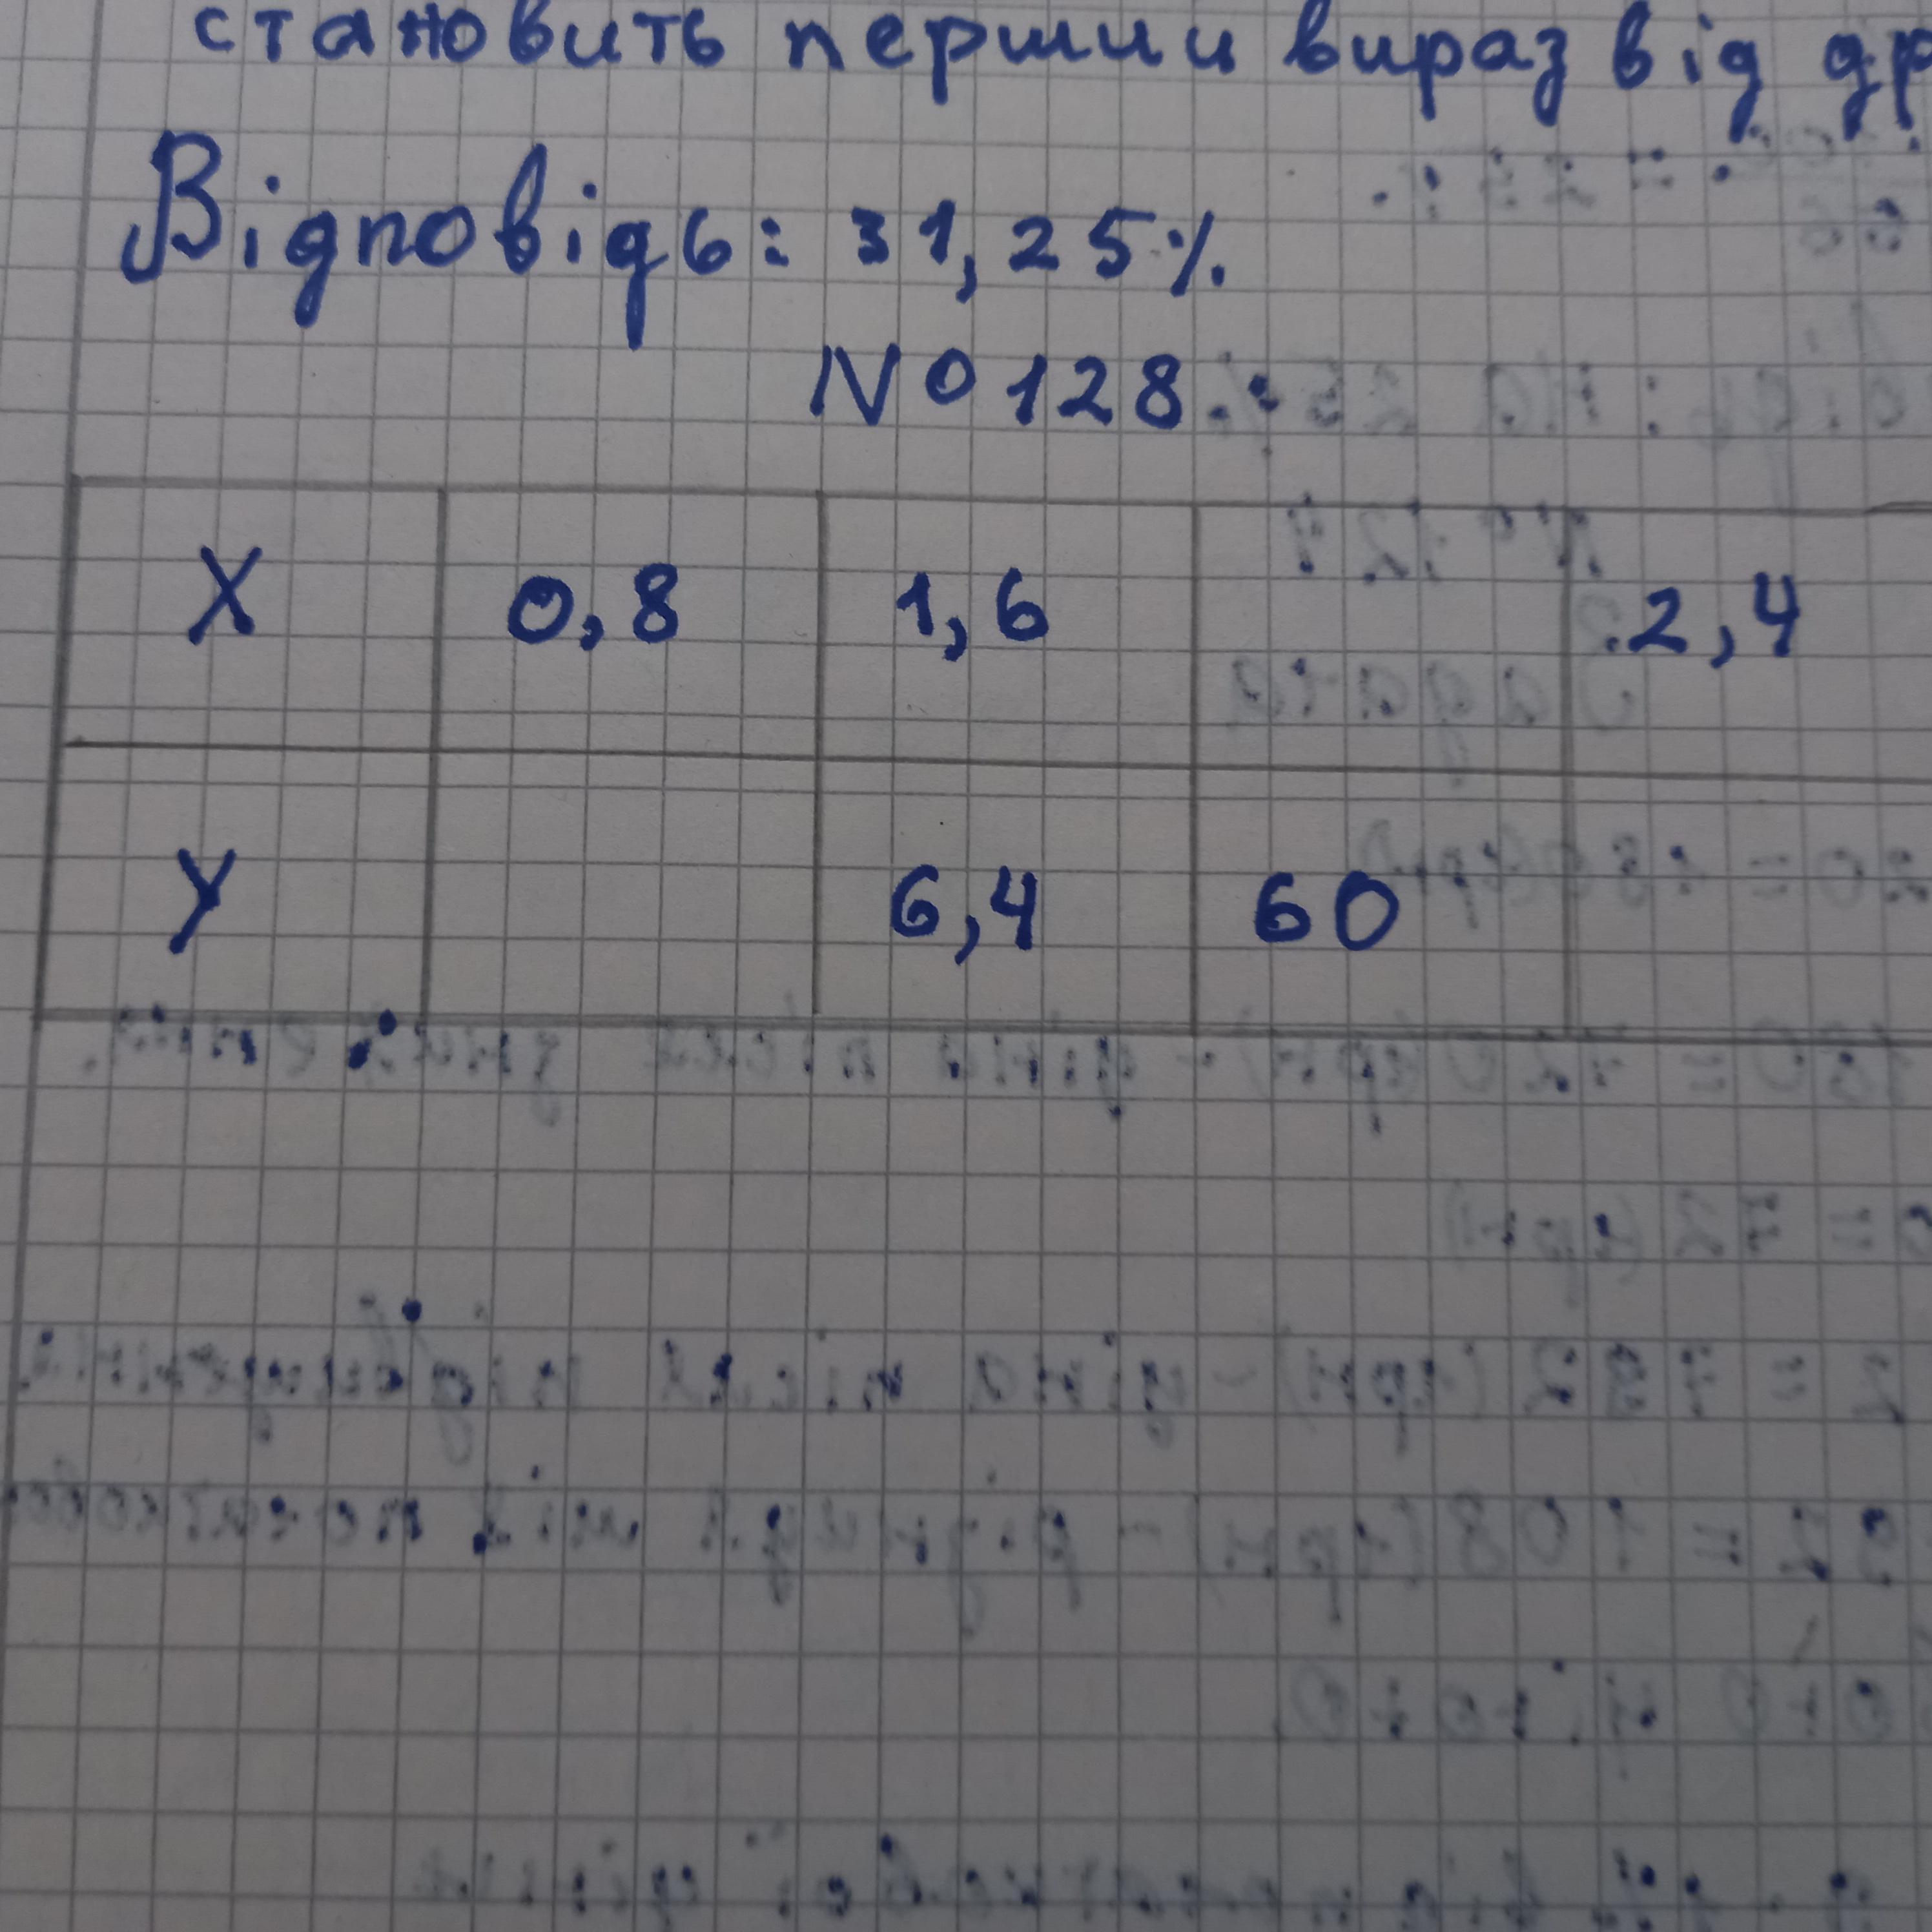 становить перший вираз від
Відповідь: 31,25%
№128
X 0,8 1,6 2,4
У 6,4 60